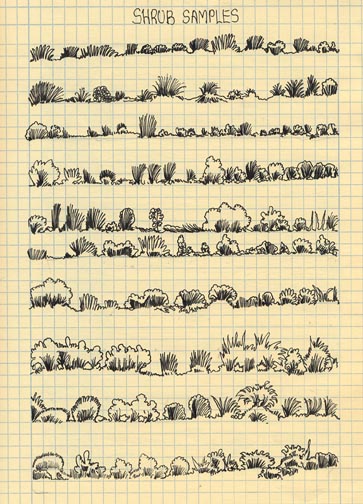 SHRUB SAMPLES